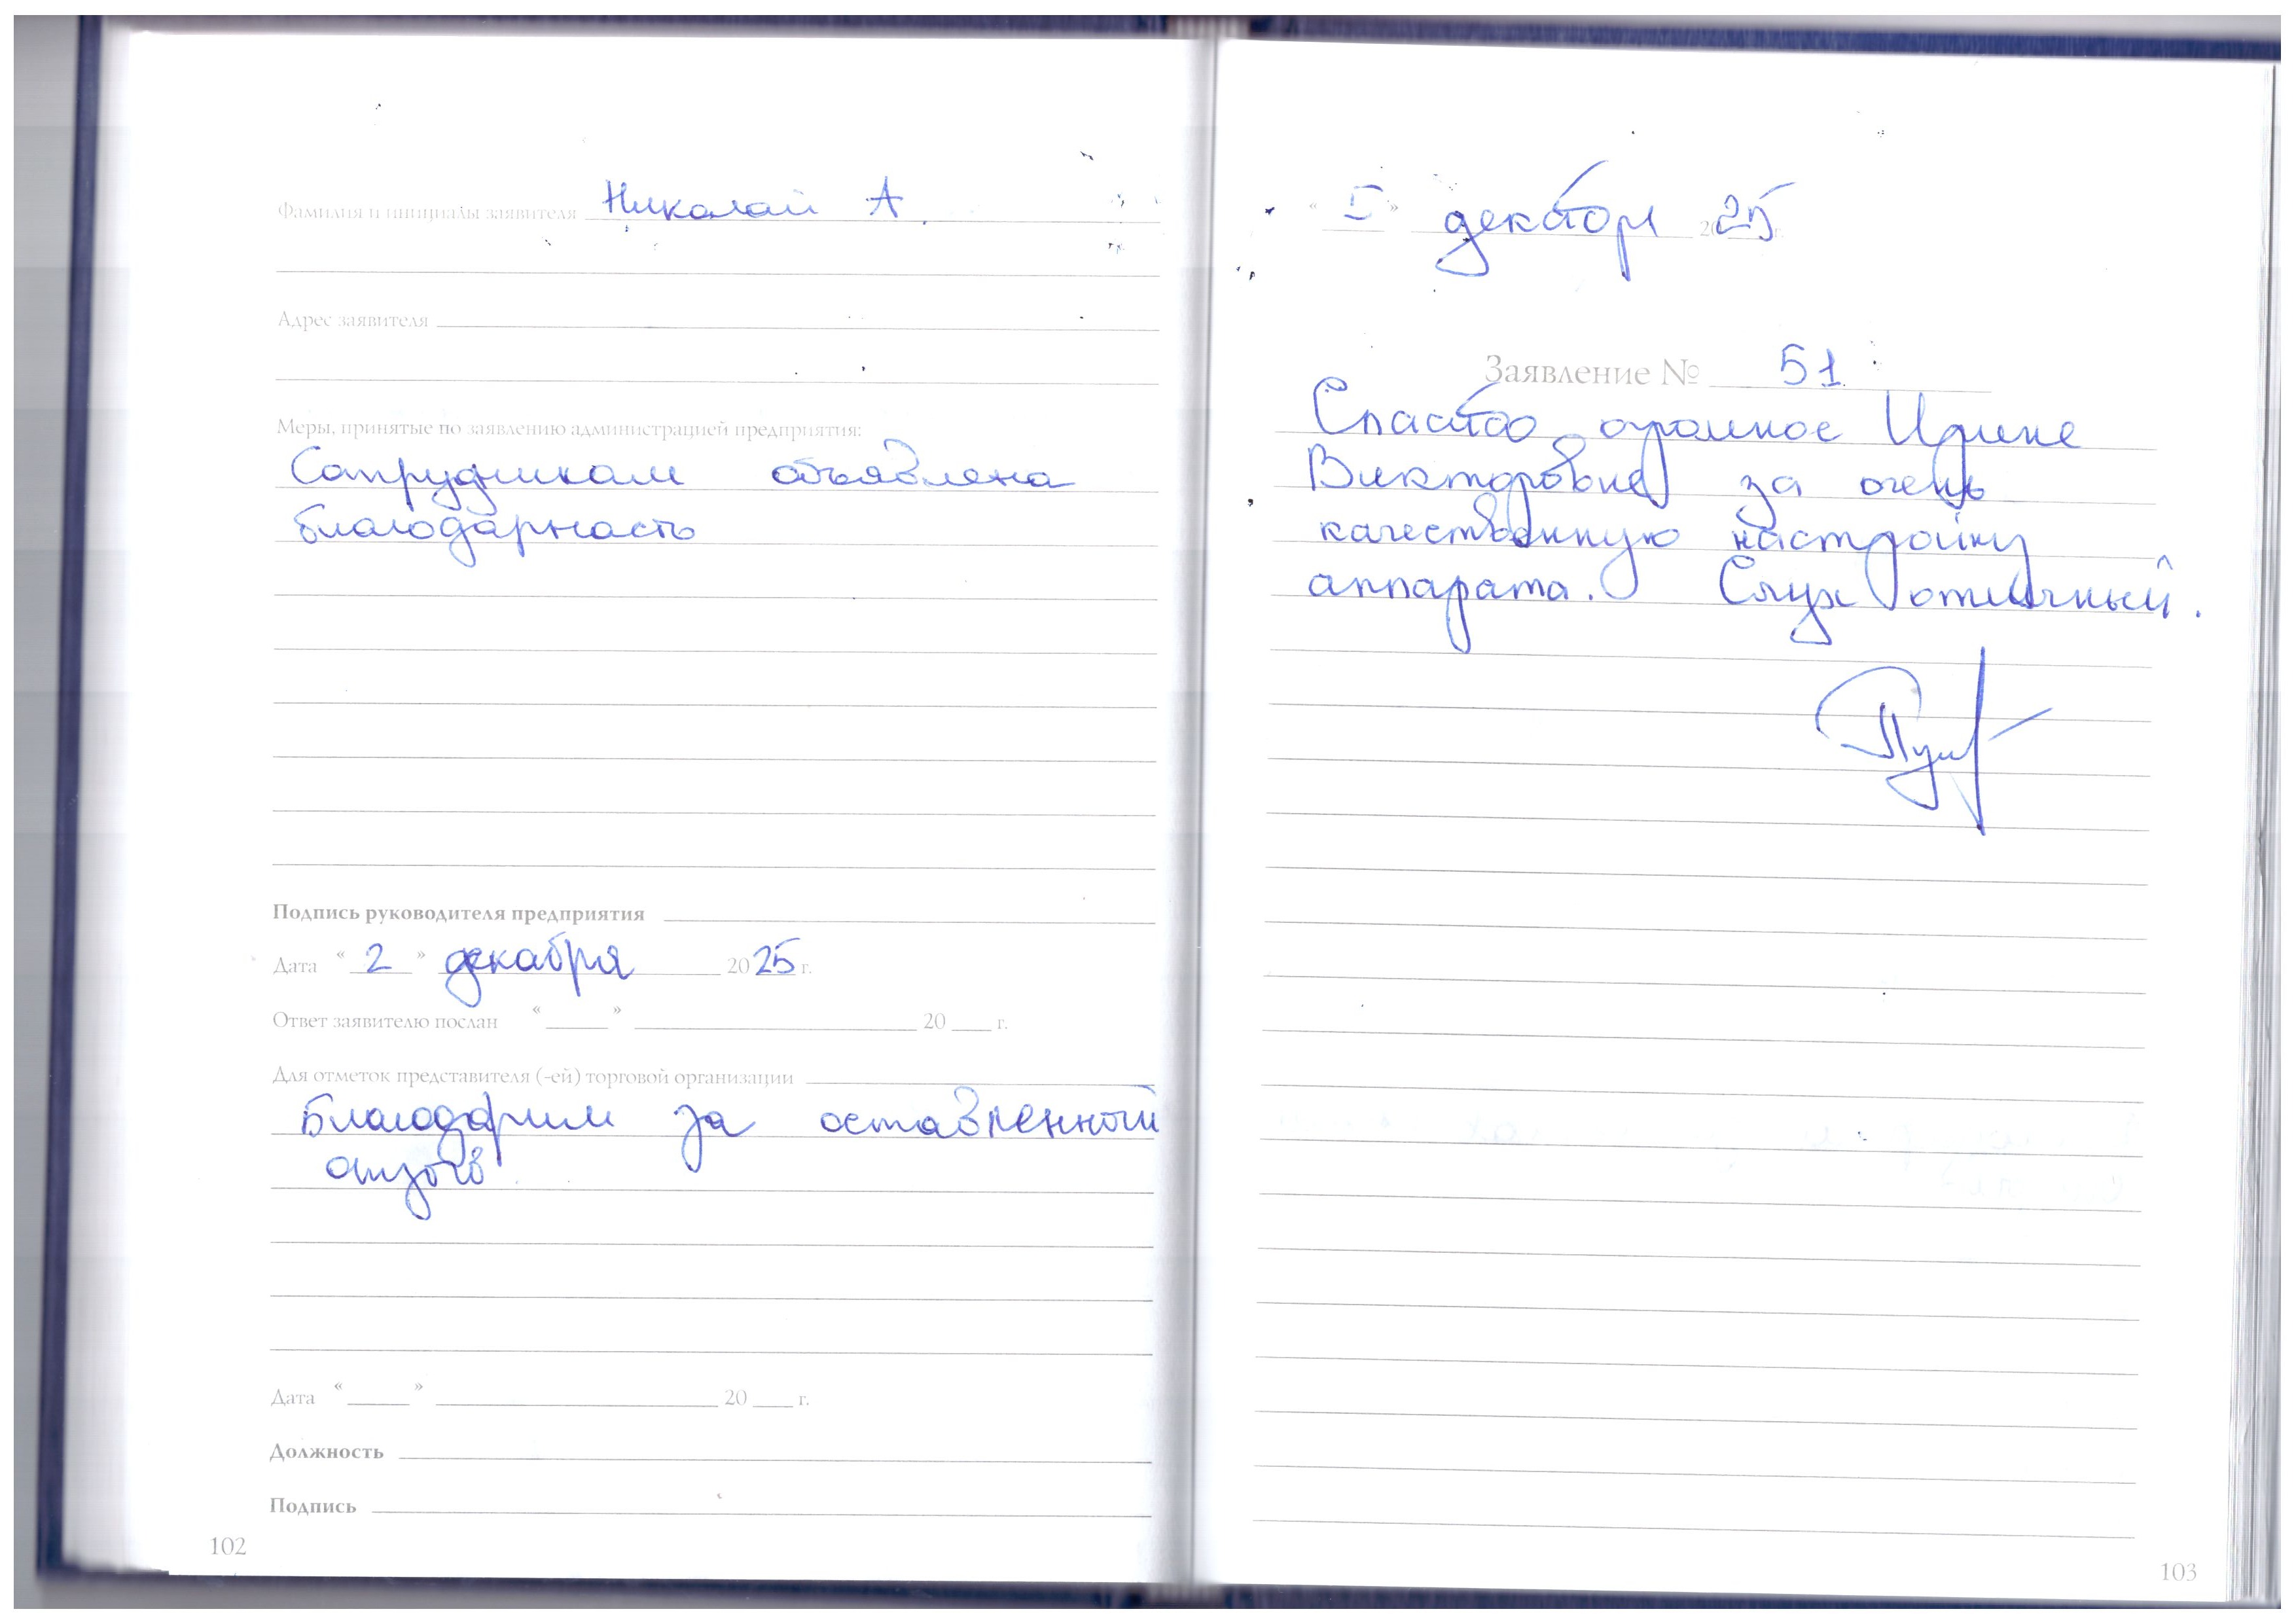 Фамилия и инициалы заявителя Николай А.
Адрес заявителя
Меры, принятые по заявлению администрацией предприятия:
Сотрудникам объявлена
благодарность
Подпись руководителя предприятия
Дата « 2 » декабря 2025 г.
Ответ заявителю послан « » 20 г.
Для отметок представителя (-ей) торговой организации
Благодарим за оставленный
отзыв
Дата « » 20 г.
Должность
Подпись
102
« » декабря 2025 г.
Заявление № 51
Спасибо огромное Ирине
Викторовне за очень
качественную настройку
аппарата. Слух отличный.
103